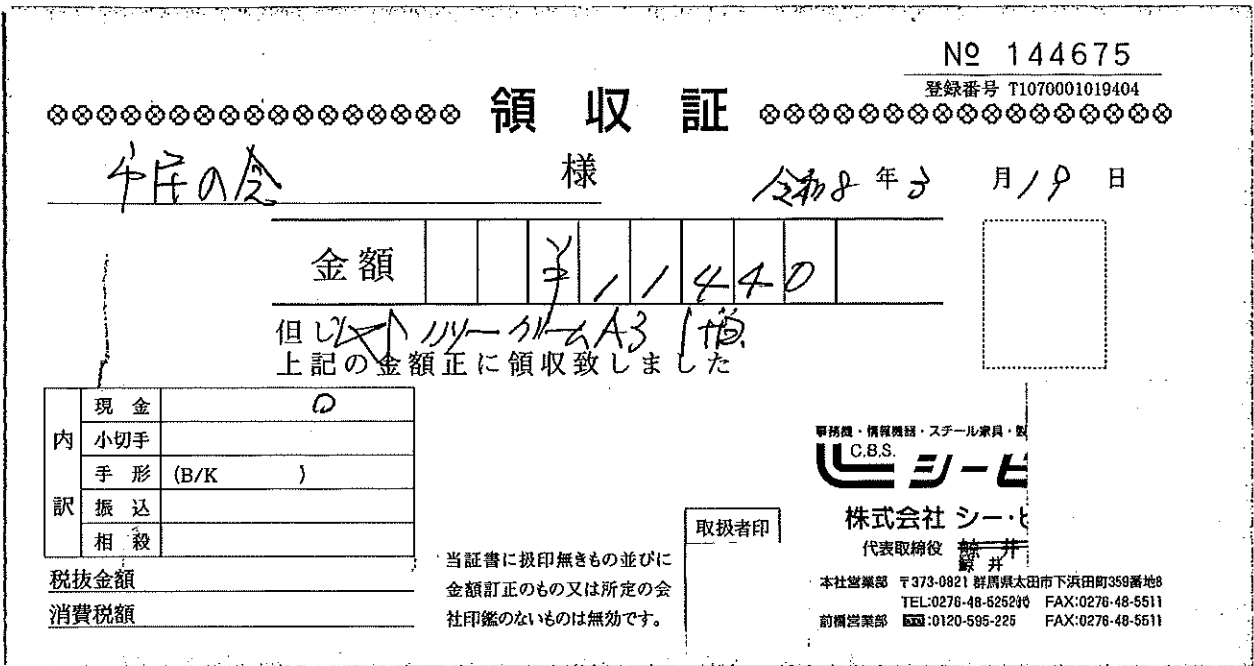 № 144675
登録番号 T1070001019404
領収証
市民の会 様
令和8年3月19日
金額 ¥11440
但し ペーパークリームA3 1箱
上記の金額正に領収致しました
内訳
現金 0
小切手
手形 (B/K )
振込
相殺
税抜金額
消費税額
当証書に扱印無きもの並びに
金額訂正のもの又は所定の会
社印鑑のないものは無効です。
取扱者印
事務機・情報機器・スチール家具・
C.B.S. シービ
株式会社 シー・ビ
代表取締役 鯨井
鯨井
本社営業部 〒373-0821 群馬県太田市下浜田町359番地8
TEL:0276-48-5252㈹ FAX:0276-48-5511
前橋営業部 :0120-595-225 FAX:0276-48-5511